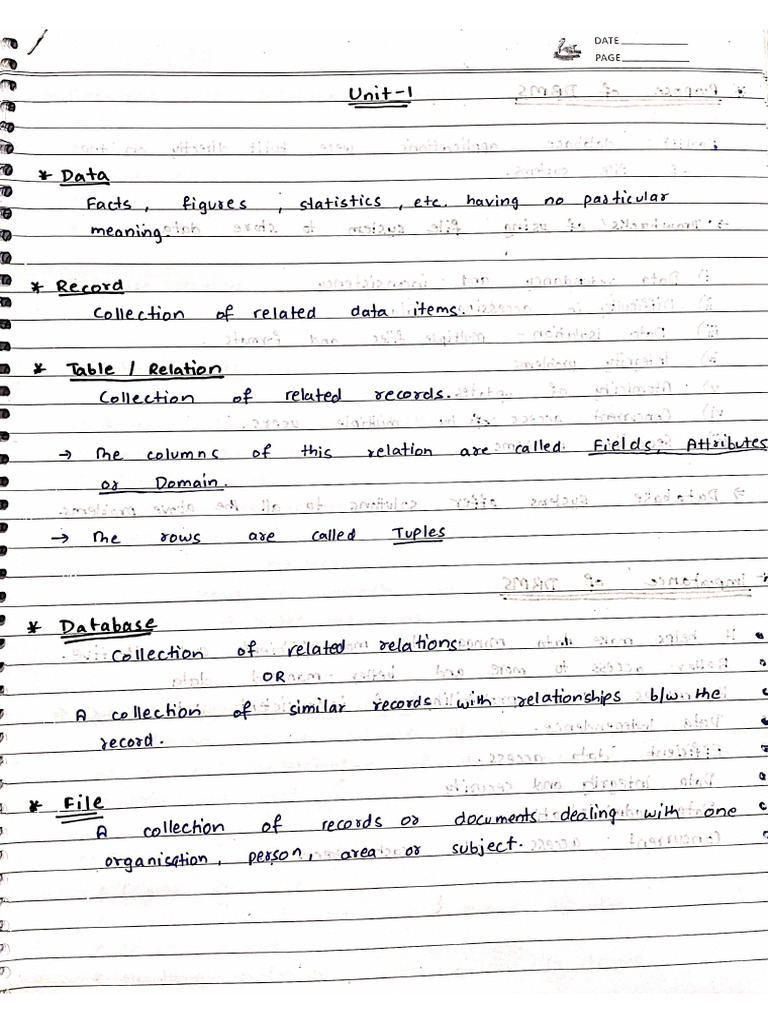 DATE
PAGE
Unit-1
* Data
Facts, figures, statistics, etc. having no particular
meaning.
* Record
Collection of related data items.
* Table / Relation
Collection of related records.
→ The columns of this relation are called Fields, Attributes
or Domain.
→ The rows are called Tuples
* Database
Collection of related relations.
OR
A collection of similar records with relationships b/w the
record.
* File
A collection of records or documents dealing with one
organisation, person, area or subject.